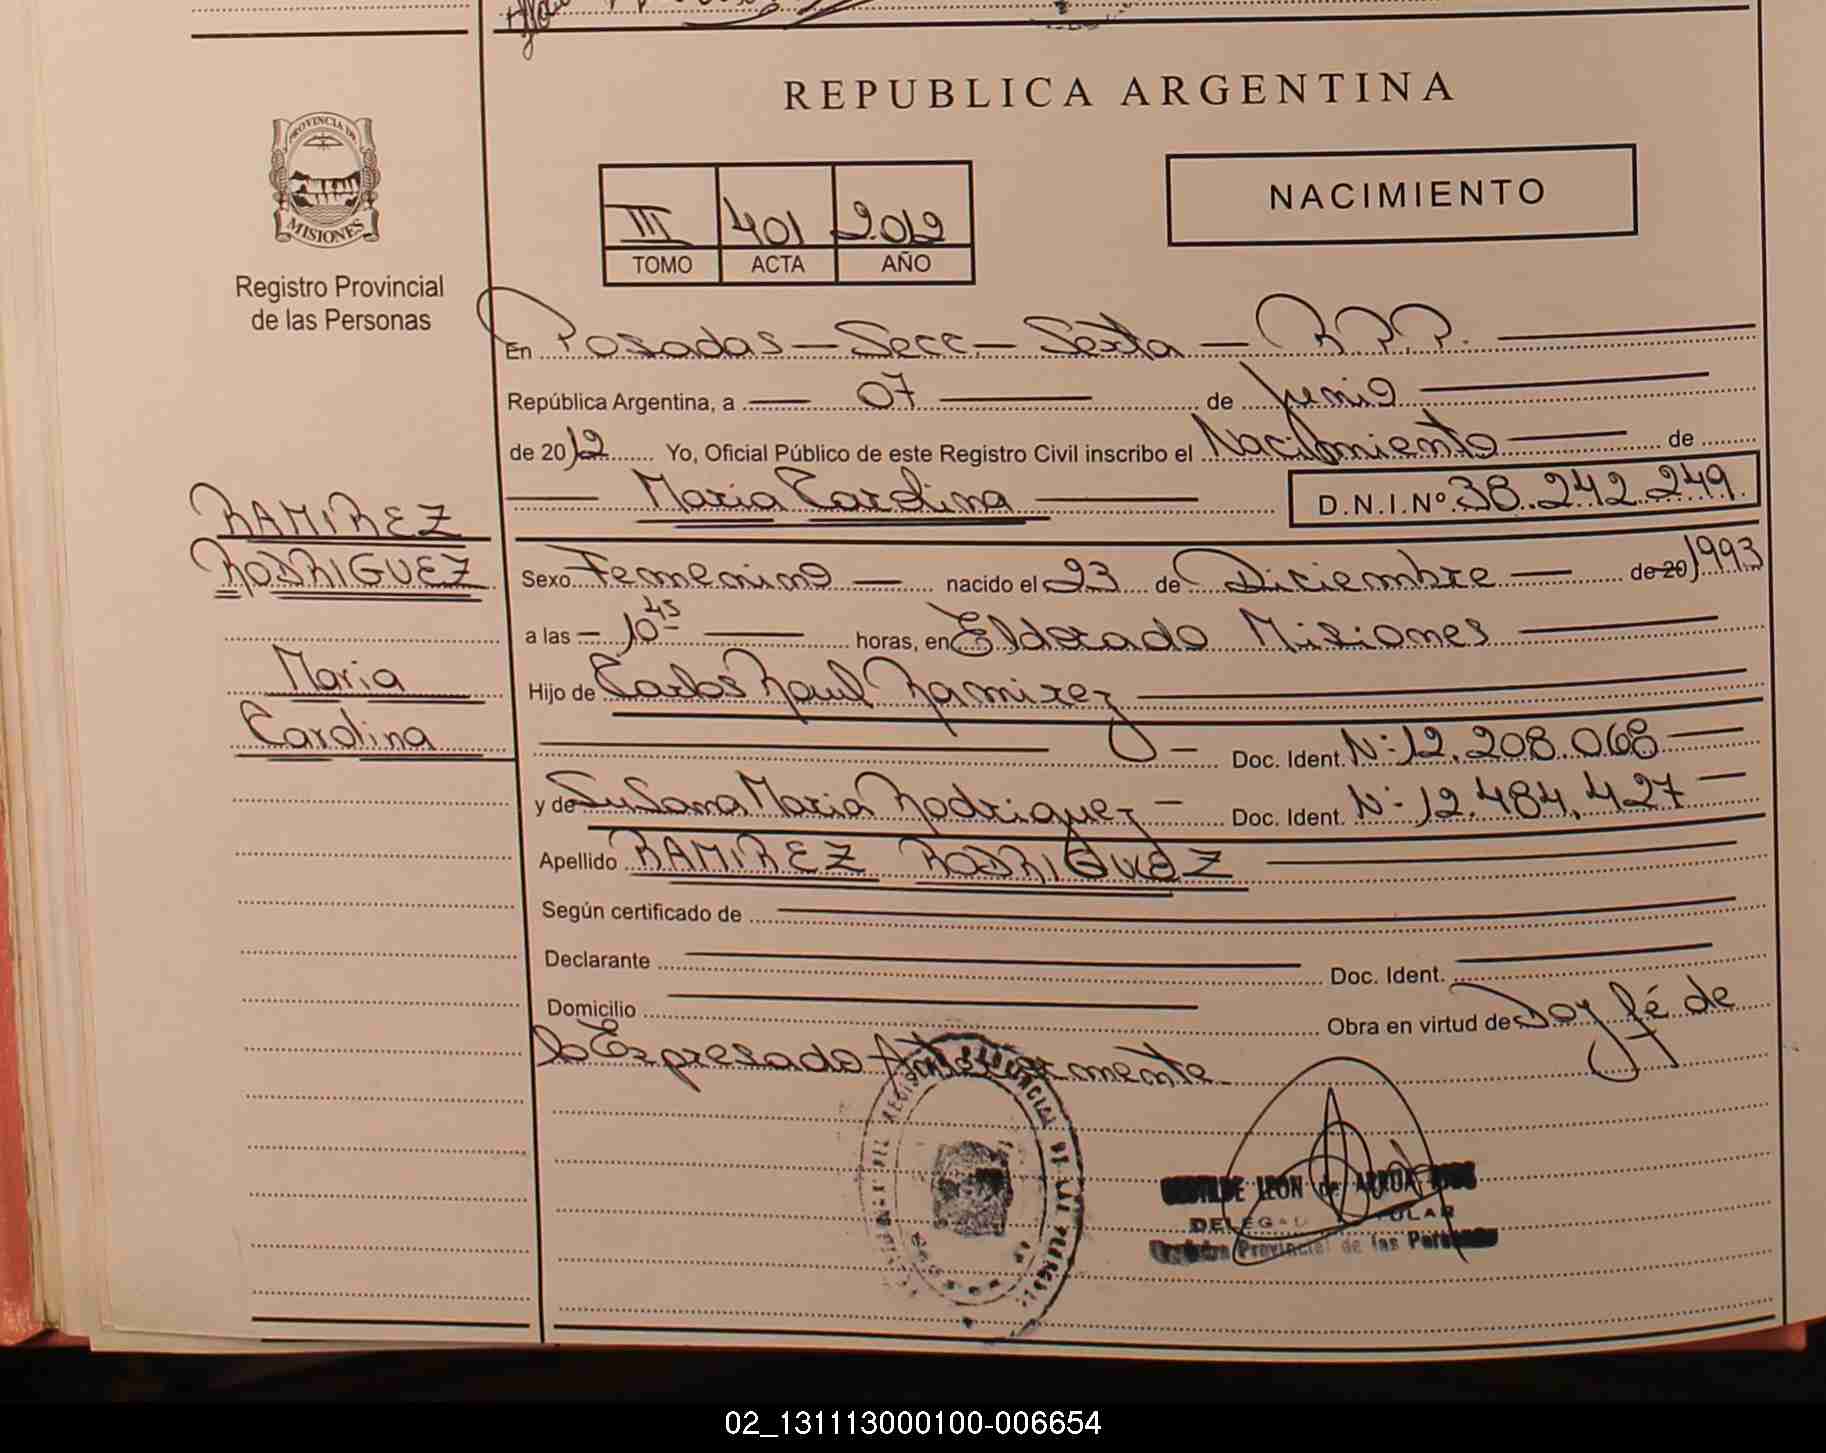 REPUBLICA ARGENTINA
PROVINCIA DE
MISIONES
Registro Provincial
de las Personas
III 401 2012
TOMO ACTA AÑO
NACIMIENTO
En Posadas - Secc. - Sexta - R.P.P.
República Argentina, a 07 de Junio
de 2012 Yo, Oficial Público de este Registro Civil inscribo el Nacimiento de
Maria Carolina D.N.I.Nº 38.242.249
RAMIREZ
RODRIGUEZ
Maria
Carolina
Sexo Femenino nacido el 23 de Diciembre de 20 1993
a las 10 45 horas, en Eldorado Misiones
Hijo de Carlos Raul Ramirez
Doc. Ident. Nº 12.208.068
y de Susana Maria Rodriguez Doc. Ident. Nº 12.484.427
Apellido RAMIREZ RODRIGUEZ
Según certificado de
Declarante Doc. Ident.
Domicilio Obra en virtud de Doy fé de
lo Expresado Anteriormente
LEON de
Registro Provincial de las Personas
02_131113000100-006654